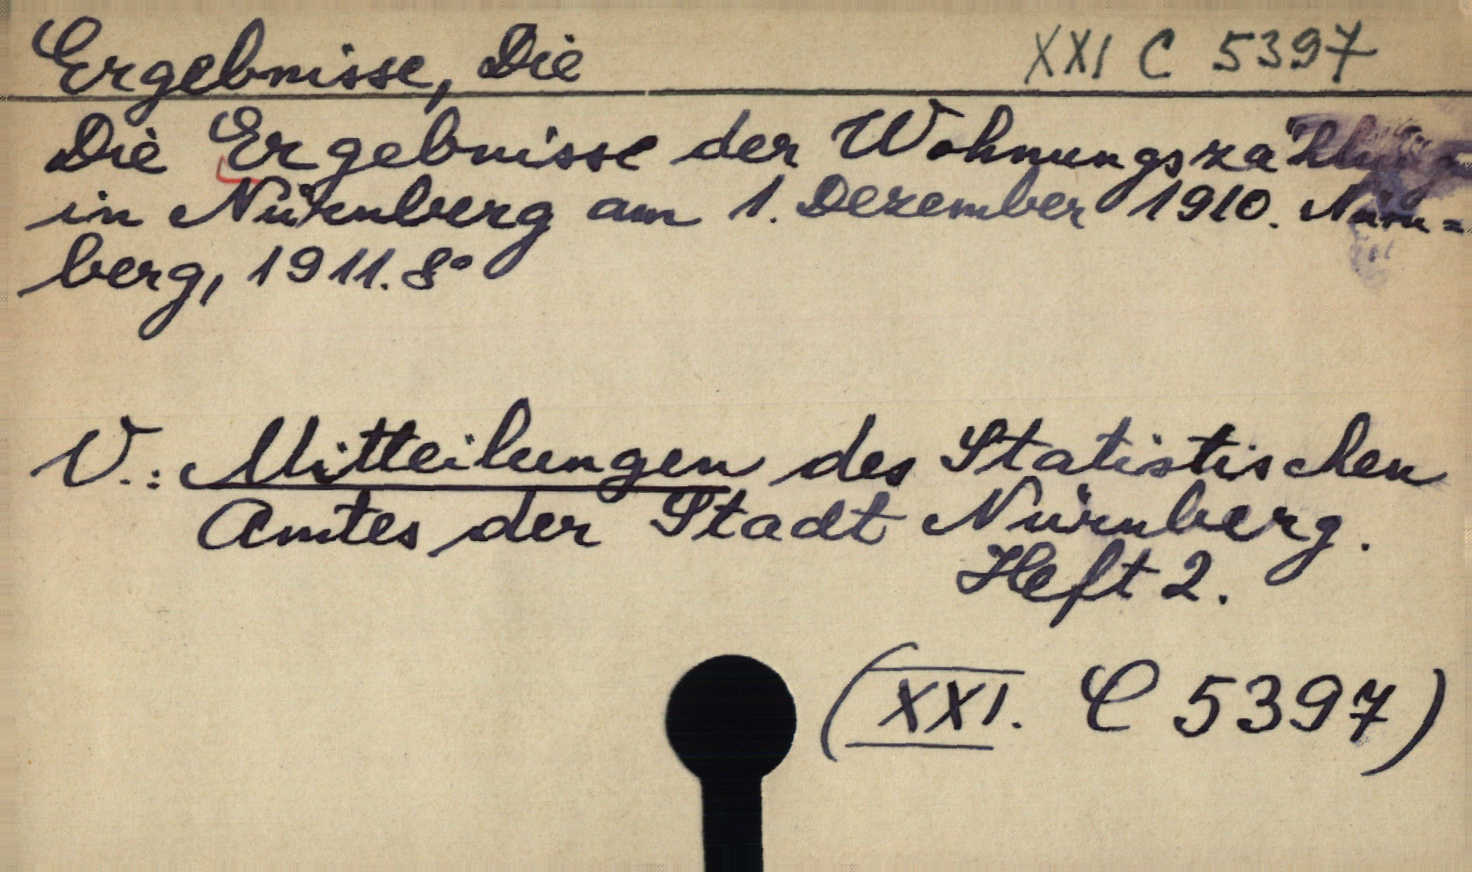 Ergebnisse, Die XXI C 5397
Die Ergebnisse der Wohnungszählung
in Nürnberg am 1. Dezember 1910. Nürn=
berg, 1911. 8°
V.: Mitteilungen des Statistischen
Amtes der Stadt Nürnberg.
Heft 2.
(XXI. C 5397)